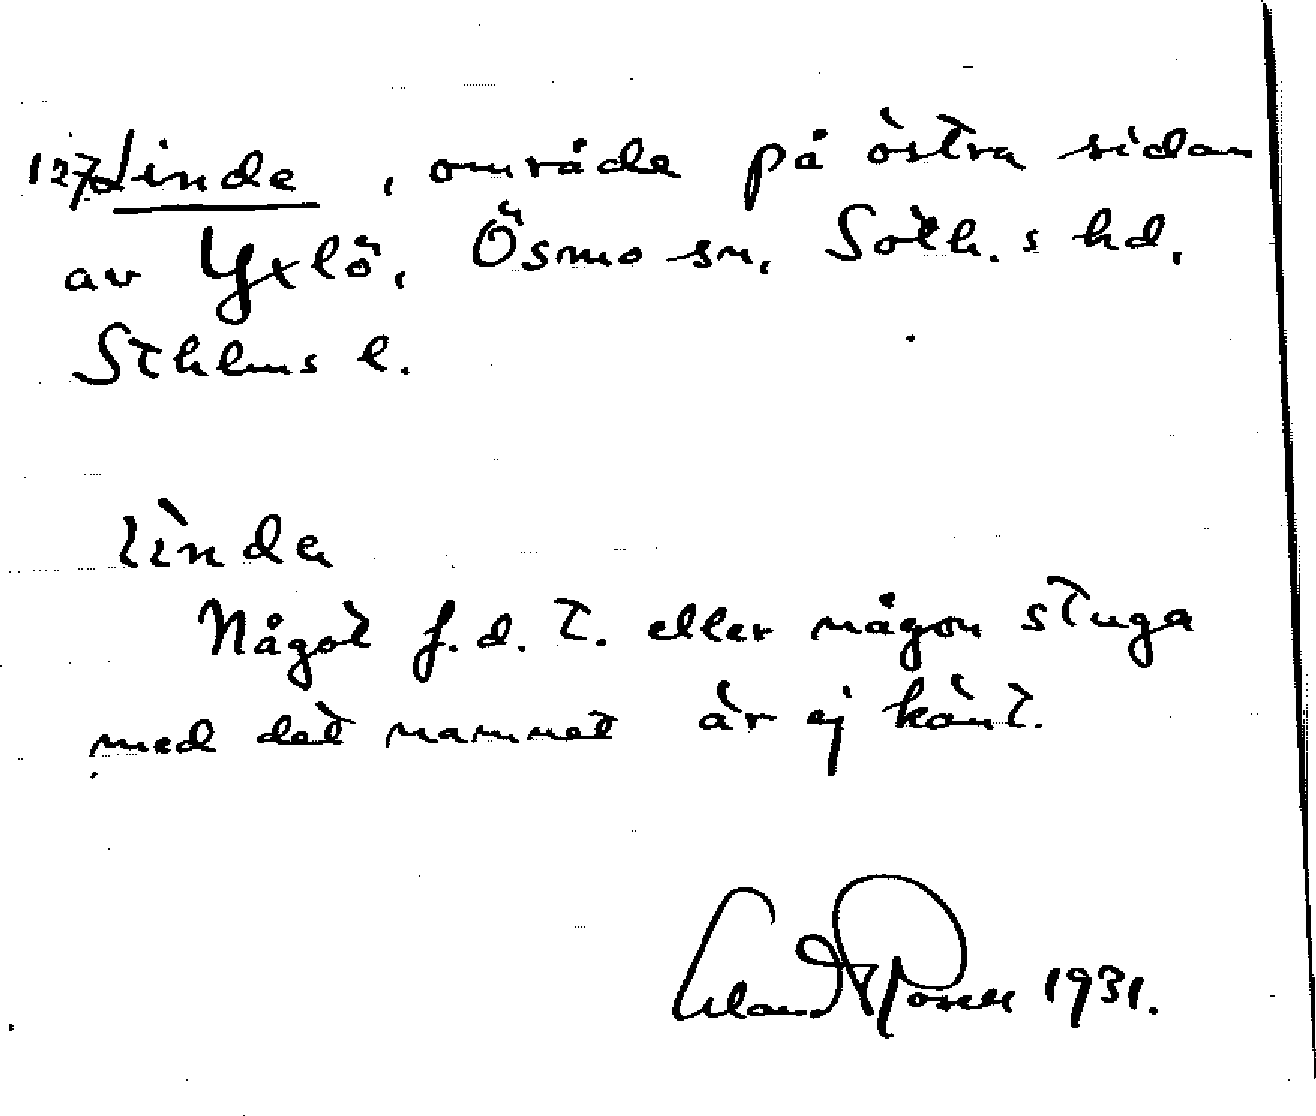 127 Linde, område på östra sidan
av Yxlö, Ösmo sn, Soth.s hd,
Sthlms l.
linde
Något f.d. t. eller någon stuga
med det namnet är ej känt.
1931.